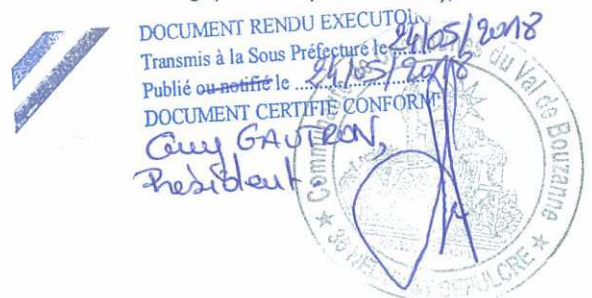 DOCUMENT RENDU EXECUTOIR
Transmis à la Sous Préfecture le 24/05/2018
Publié ou notifié le ........ 24/05/2018
DOCUMENT CERTIFIE CONFORME
Guy GAUTRON,
Président.
Communauté de Communes du Val de Bouzanne
36